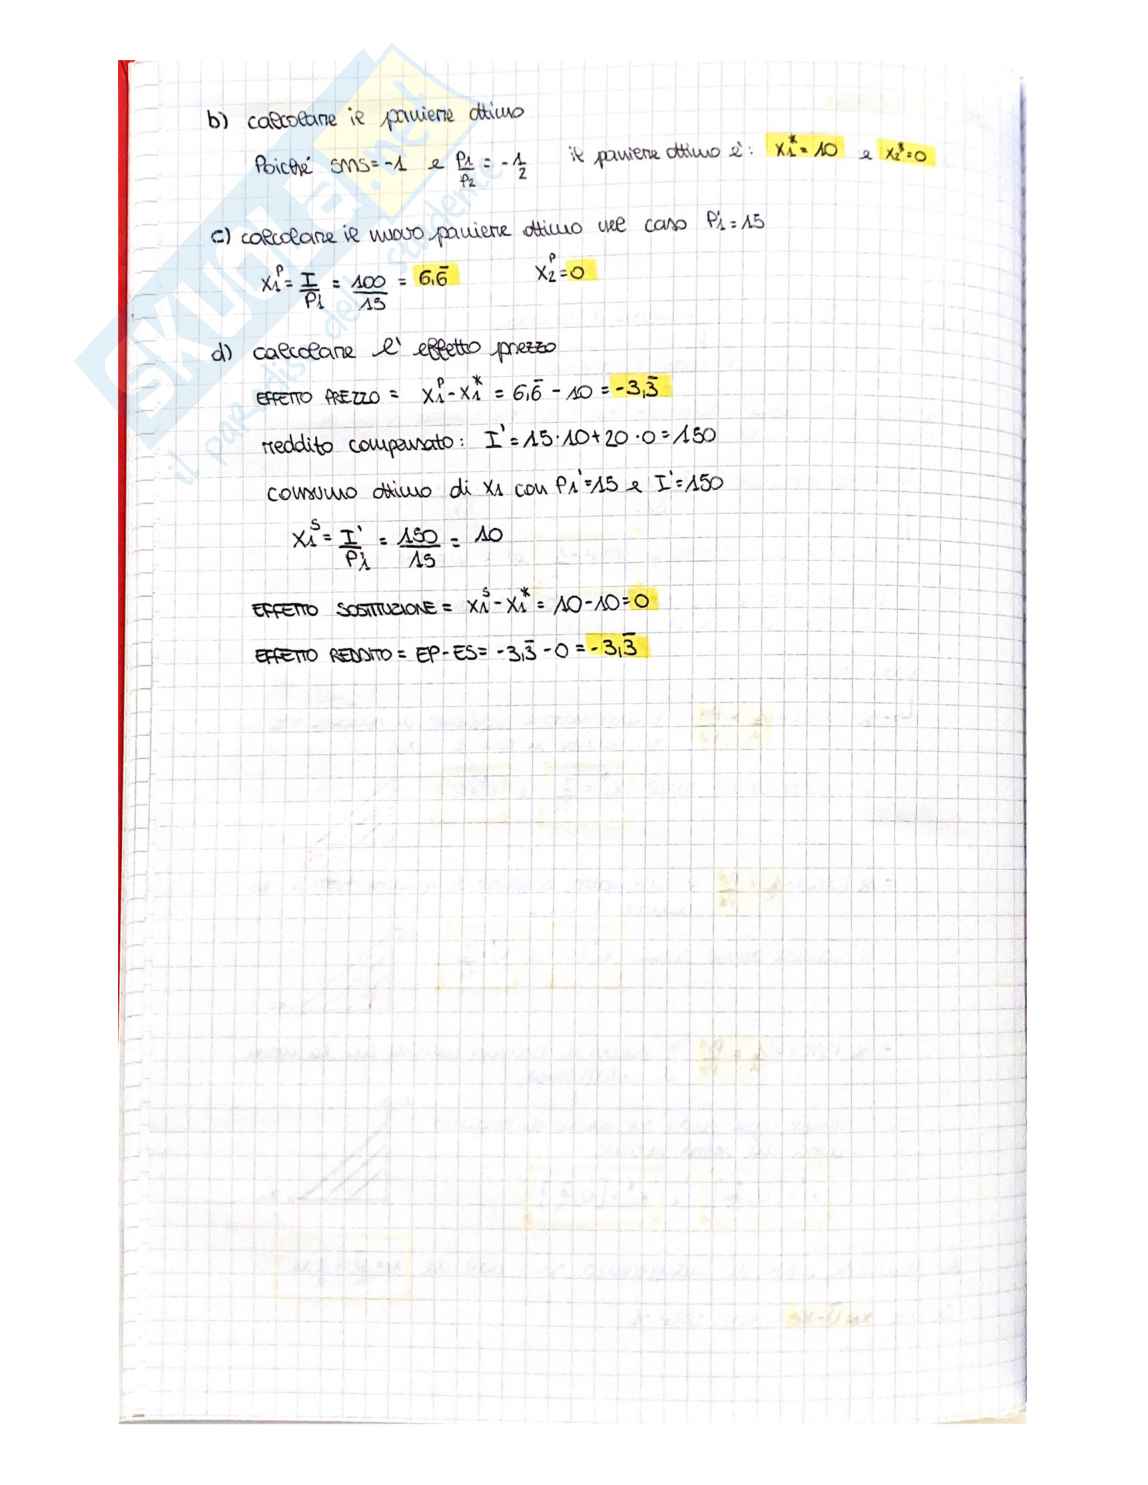 b) calcolare il paniere ottimo
Poiché SMS=-1 e P1/P2 = -1/2 il paniere ottimo è: X1*=10 e X2*=0
c) calcolare il nuovo paniere ottimo nel caso P1'=15
X1^P = I/P1' = 100/15 = 6,6̅ X2^P=0
d) calcolare l'effetto prezzo
EFFETTO PREZZO = X1^P-X1* = 6,6̅ - 10 = -3,3̅
reddito compensato: I'=15·10+20·0=150
consumo ottimo di X1 con P1'=15 e I'=150
X1^S = I'/P1' = 150/15 = 10
EFFETTO SOSTITUZIONE = X1^S-X1* = 10-10=0
EFFETTO REDDITO = EP-ES= -3,3̅ - 0 = -3,3̅
SKUOLA.net
il paradiso dello studente